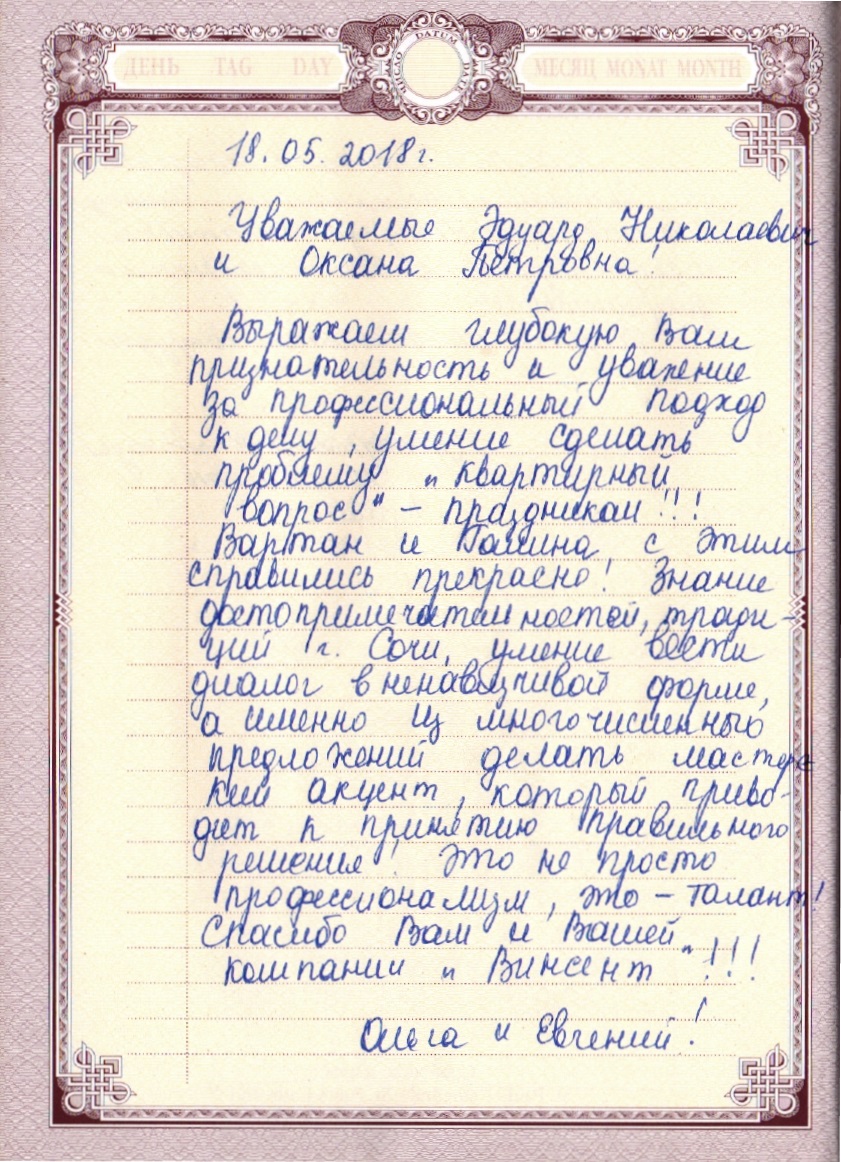 ДЕНЬ TAG DAY
DATUM
МЕСЯЦ MONAT MONTH
18.05.2018г.
Уважаемые Эдуард Николаевич
и Оксана Петровна!
Выражаем глубокую Вам
признательность и уважение
за профессиональный подход
к делу, умение сделать
проблему „квартирный
вопрос" – праздником!!!
Вартан и Галина с этим
справились прекрасно! Знание
достопримечательностей, тради-
ций г. Сочи, умение вести
диалог в ненавязчивой форме,
а именно из многочисленных
предложений делать мастерс
кий акцент, который приво-
дит к принятию правильного
решения! Это не просто
профессионализм, это – талант!
Спасибо Вам и Вашей
компании „Винсент"!!!
Ольга и Евгений!